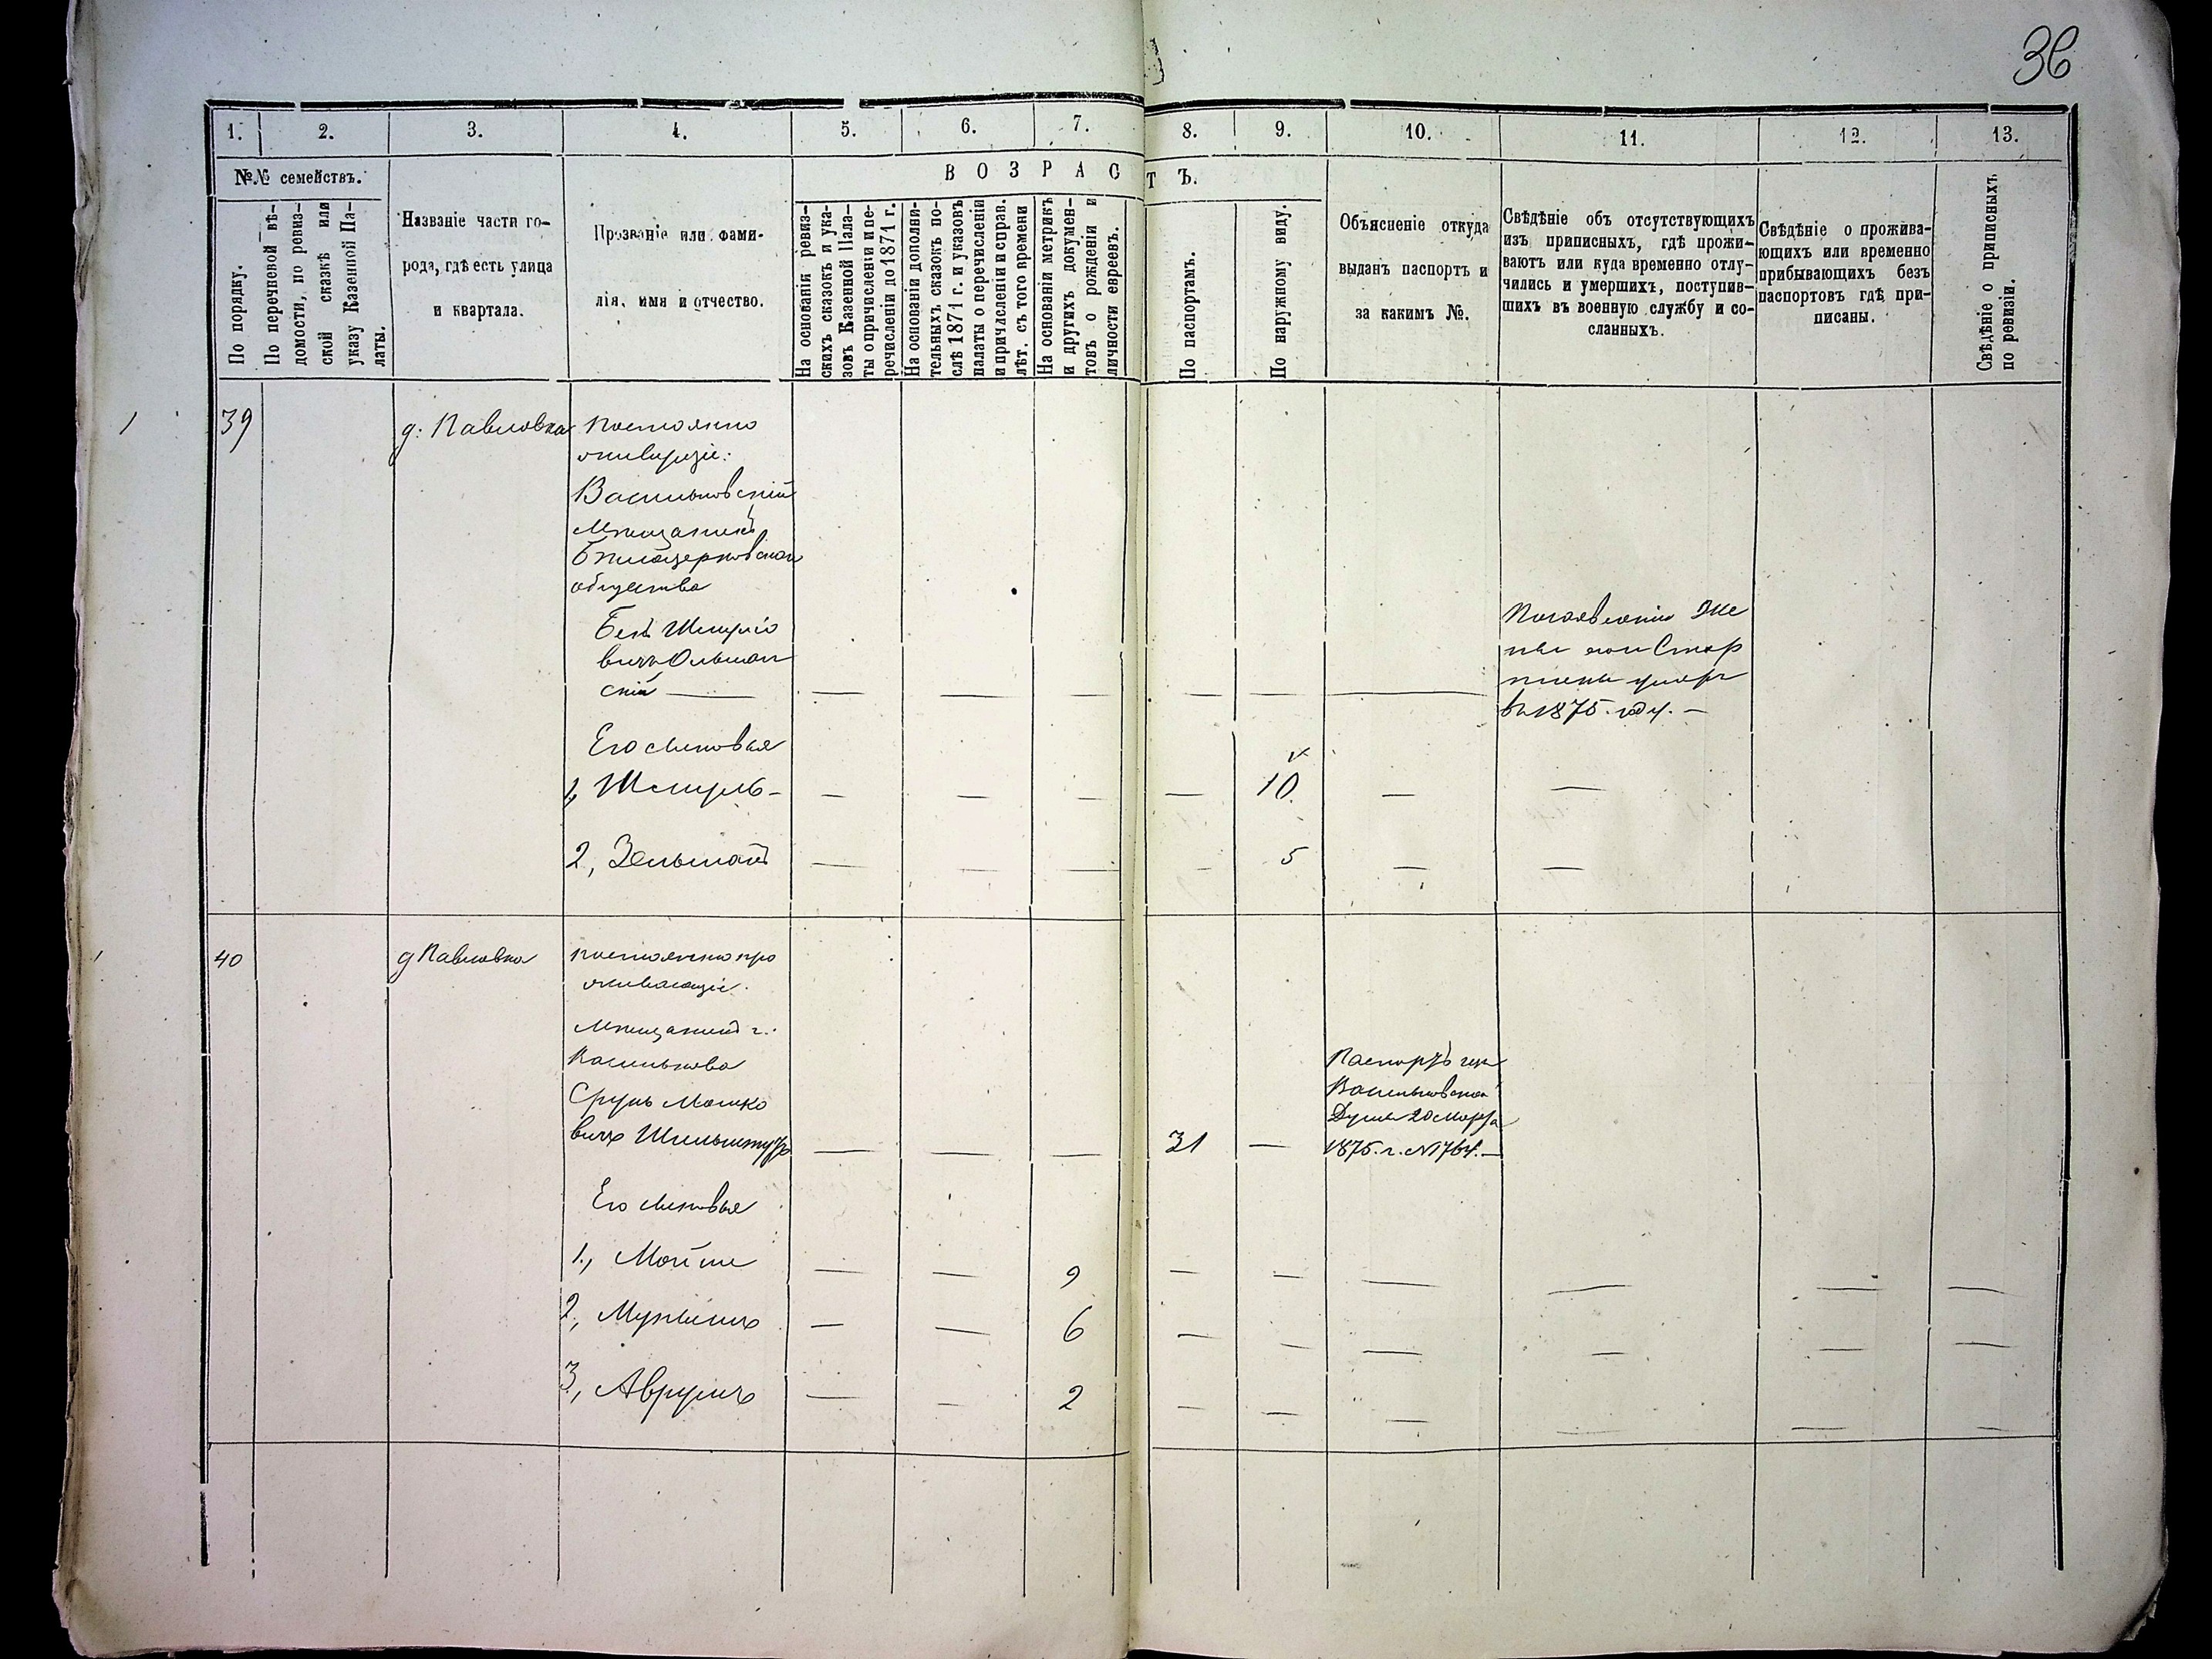 36
1. 2. 3. 4. 5. 6. 7. 8. 9. 10. 11. 12. 13.
№№ семействъ.
ВОЗРАСТЪ.
По порядку.
По перечневой вѣ-
домости, по ревиз-
ской сказкѣ или
указу Казенной Па-
латы.
Названіе части го-
рода, гдѣ есть улица
и квартала.
Прозваніе или фами-
лія, имя и отчество.
На основаніи ревиз-
скихъ сказокъ и ука-
зовъ Казенной Пала-
ты о причисленіи и пе-
речисленіи до 1871 г.
На основаніи дополни-
тельныхъ сказокъ по-
слѣ 1871 г. и указовъ
палаты о перечисленіи
и причисленіи и справ.
лѣт. съ того времени
На основаніи метрикъ
и другихъ докумен-
товъ о рожденіи и
личности евреевъ.
По паспортамъ.
По наружному виду.
Объясненіе откуда
выданъ паспортъ и
за какимъ №.
Свѣдѣніе объ отсутствующихъ
изъ приписныхъ, гдѣ прожи-
ваютъ или куда временно отлу-
чились и умершихъ, поступив-
шихъ въ военную службу и со-
сланныхъ.
Свѣдѣніе о прожива-
ющихъ или временно
прибывающихъ безъ
паспортовъ гдѣ при-
писаны.
Свѣдѣніе о приписныхъ
по ревизіи.
39 д: Павловка Постоянно
Васильковскій
Мѣщанинъ
Бѣлоцерковскаго
общества
Беръ Шмуліо
вичъ Ольшан
скій — — — — — — —
По заявленію Же
ны
умеръ
въ 1875. году. —
Его сыновья
1, Шмуль - — — — — 10. — —
2, Зельманъ — — — — 5 — —
40 д Павловка постоянно про
живающіе.
Мѣщанинъ г.
Василькова
Сруль Мошко
вичъ — — — 31 —
Паспортъ изъ
Васильковской
Думы 20 Марта
1875. г. №1764. —
Его сыновья
1., Мойше — — 9 — — — — — —
2, — — 6 — — — — — —
3, Аврумъ — — 2 — — — — — —